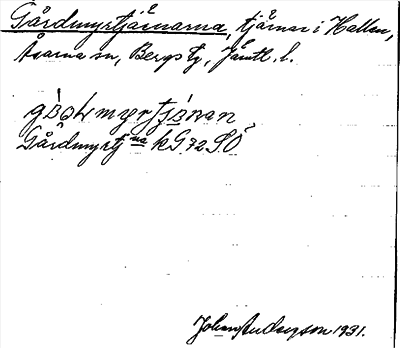 Gårdmyrtjärnarna, tjärnar i Hallen,
Åsarna sn, Bergs tg, Jämtl. l.
Gårdmyrtjna kG.72 SÖ
Johan Andersson 1931.